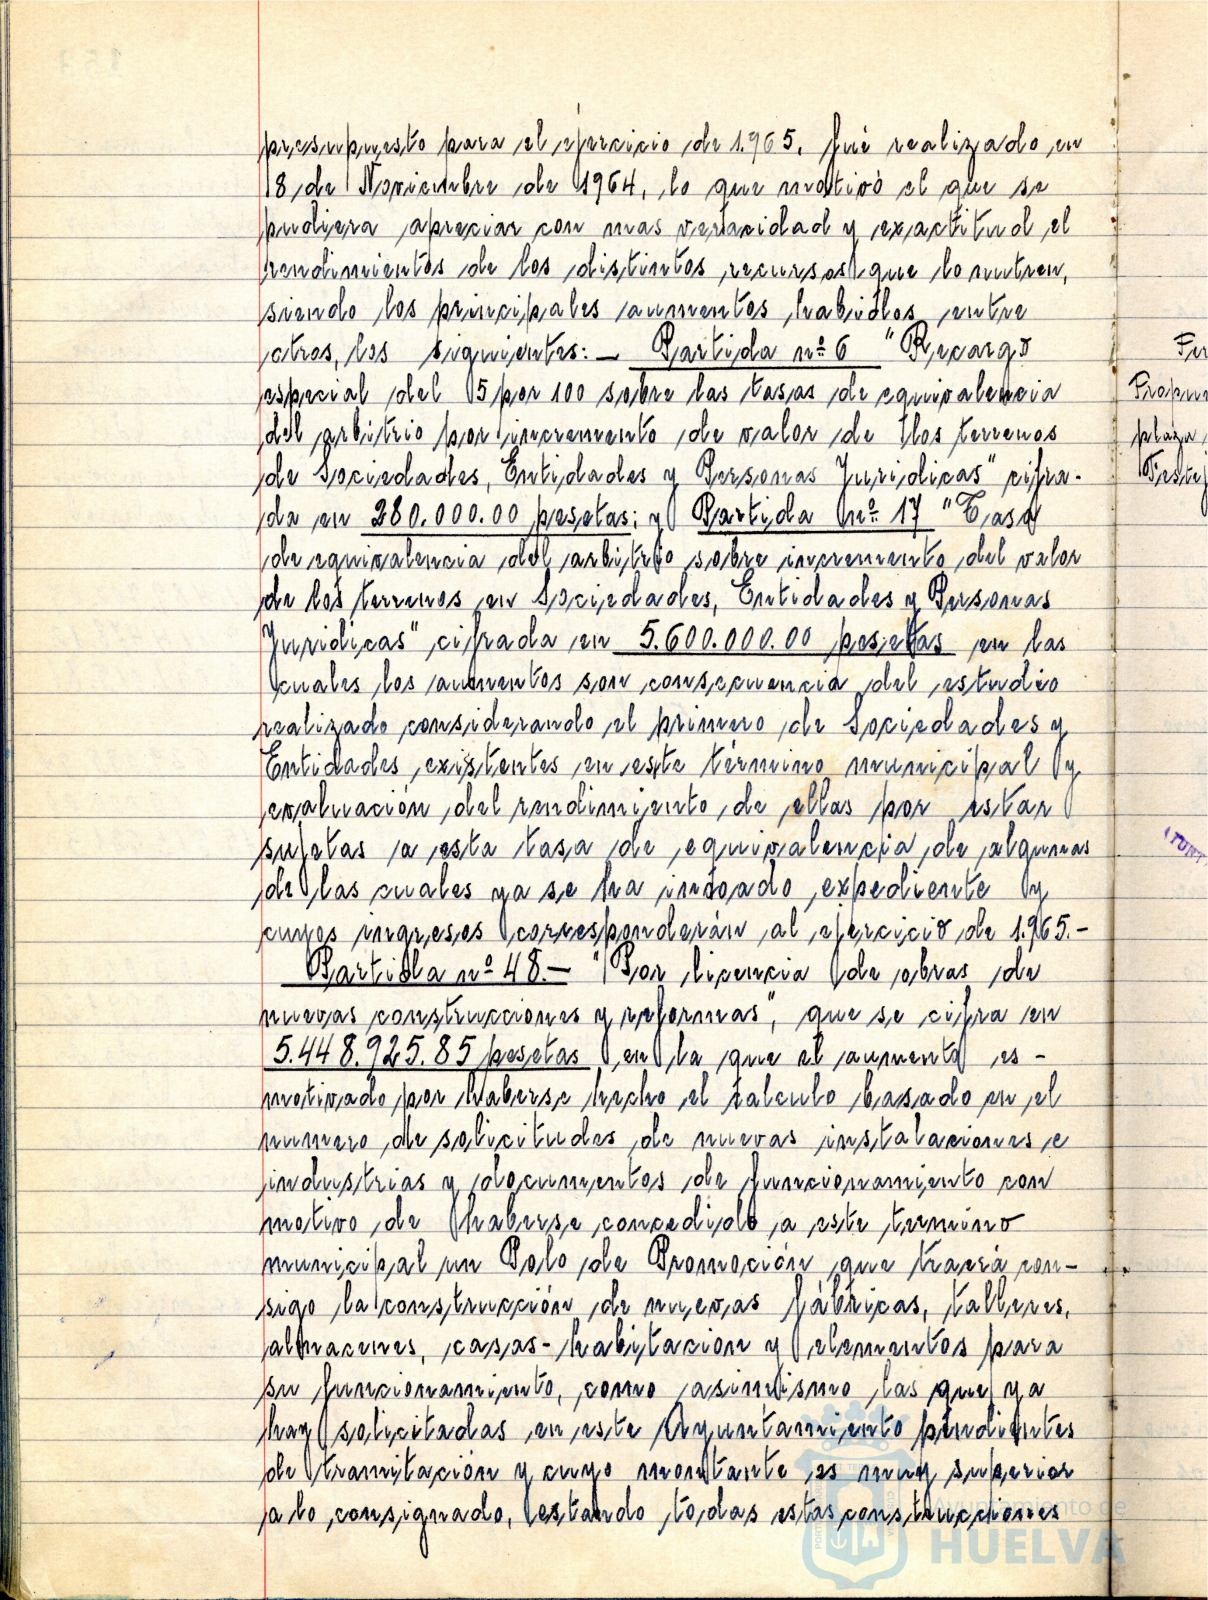 presupuesto para el ejercicio de 1.965, fué realizado en
18 de Noviembre de 1964, lo que motivó el que se
pudiera apreciar con mas veracidad y exactitud el
rendimientos de los distintos recursos que lo nutren,
siendo los principales aumentos habidos entre
otros, los siguientes:— Partida nº 6 "Recargo
especial del 5 por 100 sobre las tasas de equivalencia
del arbitrio por incremento de valor de los terrenos
de Sociedades, Entidades y Personas Juridicas" cifra-
da en 280.000.00 pesetas; y Partida nº 17 "Tasa
de equivalencia del arbitrio sobre incremento del valor
de los terrenos en Sociedades, Entidades y Personas
Juridicas" cifrada en 5.600.000.00 pesetas en las
cuales los aumentos son consecuencia del estudio
realizado considerando el primero de Sociedades y
Entidades existentes en este término municipal y
evaluación del rendimiento de ellas por estar
sujetas a esta tasa de equivalencia de algunas
de las cuales ya se ha incoado expediente y
cuyos ingresos corresponderán al ejercicio de 1.965.-
Partida nº 48.— "Por licencia de obras de
nuevas construcciones y reformas", que se cifra en
5.448.925.85 pesetas en la que el aumento es -
motivado por haberse hecho el calculo basado en el
numero de solicitudes de nuevas instalaciones e
industrias y documentos de funcionamiento con
motivo de haberse concedido a este termino
municipal un Polo de Promoción que traerá con-
sigo la construcción de nuevas fábricas, talleres,
almacenes, casas-habitacion y elementos para
su funcionamiento, como asimismo las que ya
hay solicitadas en este Ayuntamiento pendientes
de tramitación y cuyo montante es muy superior
a lo consignado, estando todas estas construcciones
Ayuntamiento de
HUELVA